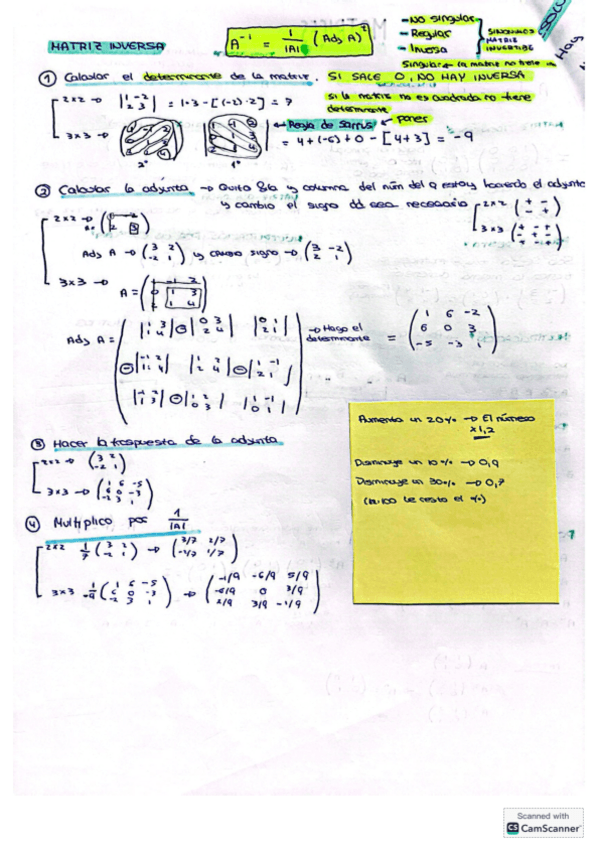 MATRIZ INVERSA
A⁻¹ = 1/|A| (Adj A)ᵗ
- NO singular
- Regular
- Inversa
SINÓNIMOS MATRIZ INVERTIBLE
Singular ← la matriz no tiene
Hay
① Calcular el determinante de la matriz. SI SALE 0, NO HAY INVERSA
si la matriz no es cuadrada no tiene determinante
2x2 → |1 -2 / 2 3| = 1·3 - [(-2)·2] = 7
3x3 →
← Regla de Sarrus ← poner
= 4 + (-6) + 0 - [4+3] = -9
2º 1º
② Calcular la adjunta → Quito fila y columna del núm del q estoy haciendo el adjunto
y cambio el signo si es necesario
2x2 (+ - / - +)
3x3 (+ - + / - + - / + - +)
2x2 →
Adj A → (3 2 / -2 1) y cambio signo → (3 -2 / 2 1)
3x3 →
A =
1 3
1 4
Adj A =
→ Hago el determinante
= (1 6 -2 / 6 0 3 / -5 -3 1)
③ Hacer la traspuesta de la adjunta
2x2 → (3 2 / -2 1)
3x3 → (1 6 -5 / 6 0 -3 / -2 3 1)
④ Multiplico por 1/|A|
2x2 1/7 (3 2 / -2 1) → (3/7 2/7 / -2/7 1/7)
3x3 1/-9 (1 6 -5 / 6 0 -3 / -2 3 1) → (-1/9 -6/9 5/9 / -6/9 0 3/9 / 2/9 3/9 -1/9)
Aumenta un 20% → El número
x1,2
Disminuye un 10% → 0,9
Disminuye un 30% → 0,7
(a 100 le resto el %)
Scanned with
CS CamScanner